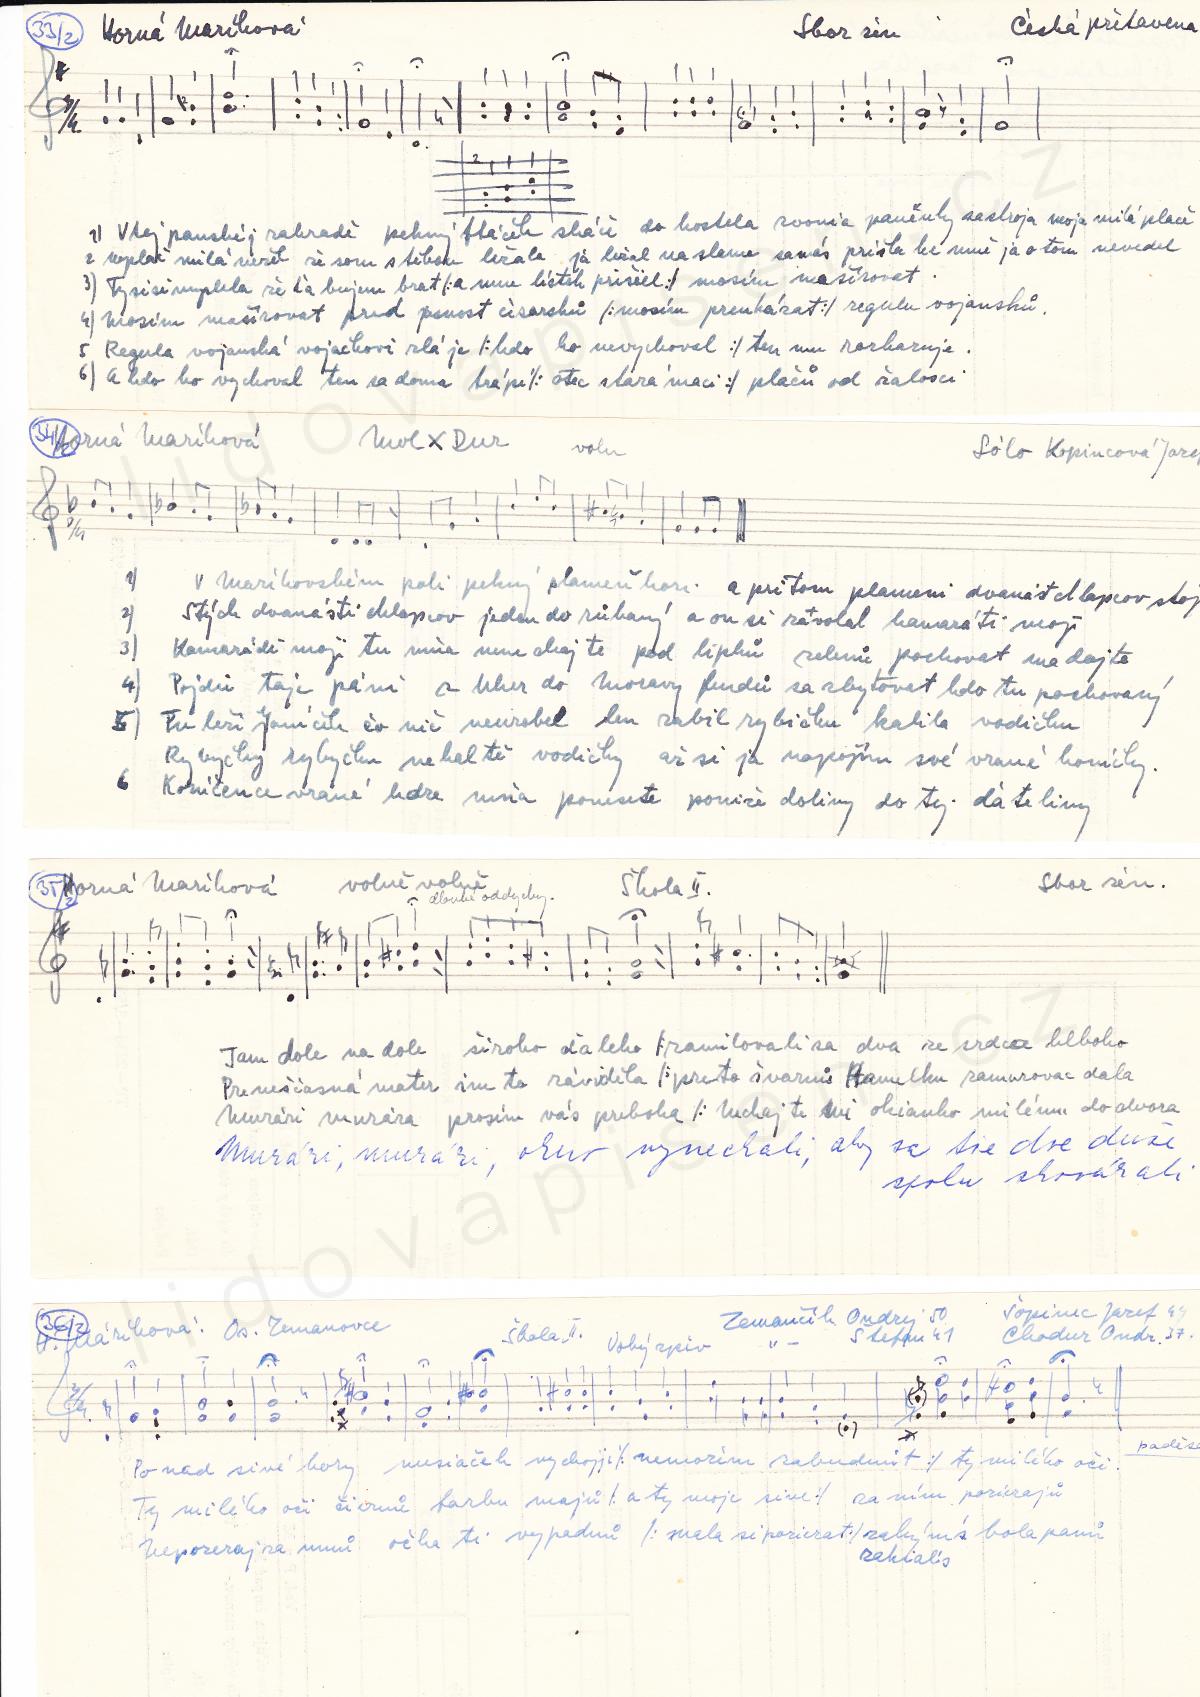 33/2 Horná Maríková Sbor žen Česká přitavena
1) V tej panskéj zahradě pekný ptáček skáče do kostela zvonia paněnky sa stroja moja milá plače
2 neplač milá neřež že som s tebou ležala já ležal na slame sama's prišla ke mně ja o tom nevedel
3) Ty si si myslela že ťa budem brat /: a mne lístek prišėl :/ mosím mašírovat.
4) Mosím mašírovat pred pevnost císarskú /: mosím preukázat :/ regulu vojanskú.
5 Regula vojanská vojačkovi zlá je /: kdo ho nevychoval :/ ten mu rozkazuje.
6) A kdo ho vychoval ten sa doma trápí /: otec stará maci :/ pláčú od žalosci
34/2 Horná Maríková Mol X Dur voln Sólo Kopincová Jozef
1) V Maríkovském poli pekný plameň hori. a pri tom plameni dvanást chlapcov stojí
2) S tých dvanásti chlapcov jeden dorúbaný a on si zavolal kamaráti moji
3) Kamarádi moji tu mňa nenechajte pod lipkú zelenú pochovat ma dajte
4) Pojdú taje páni z Uher do Moravy budú sa zbytovat kdo tu pochovaný
5) Tu leží Janíček čo nič neurobel len zabil rybičku kalila vodičku
Rybičky rybičku nekalte vodičky až si ja napojím své vrané koníčky.
6 Koníčence vrané kdze mňa ponesete poniže doliny do tej dáteliny
35/2 Horná Maríková volně volně Škola II. Sbor žen.
dlouhé oddychy.
Tam dole na dole široko ďaleko /: zamilovali sa dva ze srdca hlboko
Prenešťasná mater im to závidela /: preto švarnú Hanulku zamurovac dala
Murári murára prosím vás preboha /: Nechajte mi okianko milému do dvora
Murári, murári, okno vynechali, aby sa tie dve duše
spolu shovárali
36/2 H. Maríková. Os. Zemanovce Škola II. Zemančík Ondrej 50 Šopinec Jozef 49
Volný zpiv -"- Štefan 41 Chodur Ondr. 37.
Ponad sivé hory mesiáček vychojí /: nemozem zabudnút :/ ty milého oči.
Ty milého oči čiernú farbu majú /: a ty moje sivé :/ za ním pozerajú
Nepozeraj za mnú očka ti vypadnú /: mala si pozerat :/ zakým's bola panú
zakialis